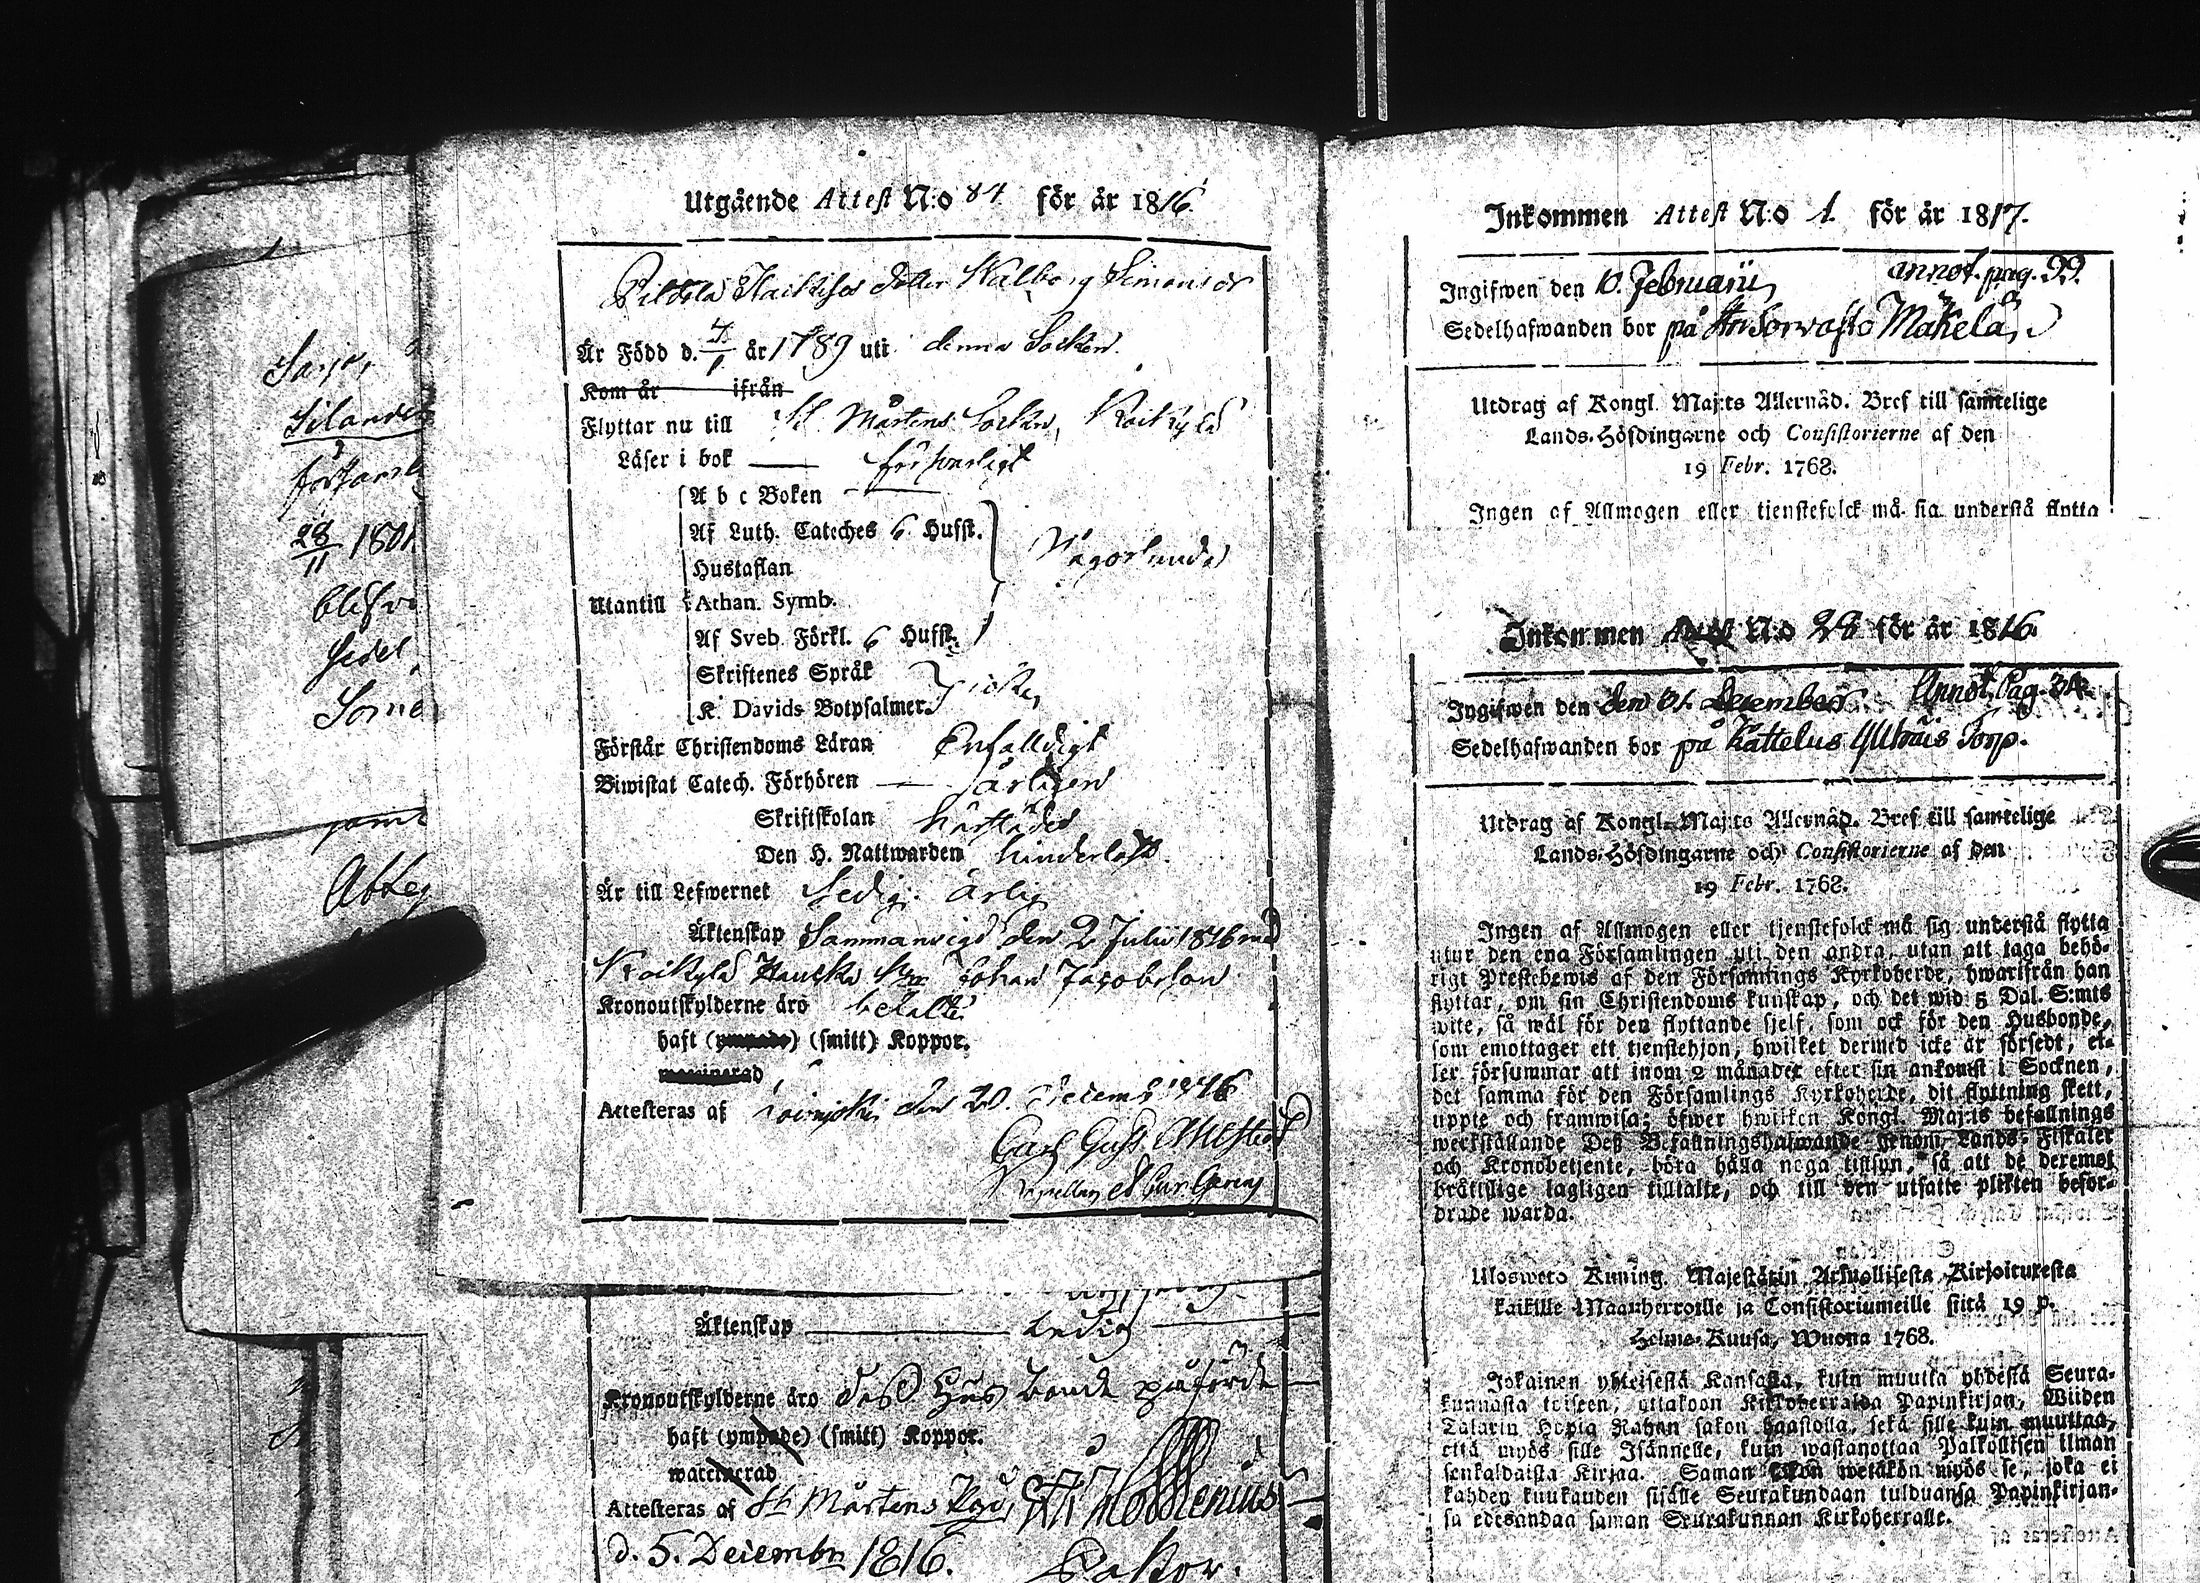 Sarjo,
Silande
förkarsl
28/11 1801
blifvi
Sedel
Some
samt
Utgående Attest N:o 84 för år 1816.
dotter Walborg Simonsdr
Är Född d. 4/1 år 1789 uti denna Socken.
Kom år ifrån
Flyttar nu till St. Mårtens Socken,
Läser i bok — försvarligt
A b c Boken
Af Luth. Cateches 6 Hufst.
Någorlunda
Hustaflan
Utantill Athan. Symb.
Af Sveb. Förkl. 6 Hufst.
Skriftenes Språk
K. Davids Botpsalmer.
Förstår Christendoms Läran Enfalldigt
Biwistat Catech. Förhören — årligen
Skriftskolan härstädes
Den H. Nattwarden hinderlös
Är till Lefwernet Sedig ärlig
Äktenskap Sammanvigd den 2 Julii 1816 med
Johan Jacobsson
Kronoutskylderne äro betalte
haft (ympade) (smitt) Koppor.
waccinerad
Attesteras af Loimjoki den 20. Decemb 1816
Carl Gust.
Äktenskap — Ledig —
Kronoutskylderne äro dess Husbonde påförde
haft (ympade) (smitt) Koppor.
waccinerad
Attesteras af St Mårtens
d. 5. Decembr 1816. Pastor.
Inkommen Attest N:o 1. för år 1817.
Ingifwen den 10. Februarii, annot. pag. 99.
Sedelhafwanden bor på Mäkelä,
Utdrag af Kongl. Maj:ts Allernåd. Bref till samtelige
Lands-Höfdingarne och Consistorierne af den
19 Febr. 1768.
Ingen af Allmogen eller tienstefolck må sig understå flytta
Inkommen Attest N:o 28 för år 1816.
Ingifwen den den 31. December Annot. Pag. 34.
Sedelhafwanden bor på Kattelus Torp.
Utdrag af Kongl. Maj:ts Allernåd. Bref till samtelige
Lands-Höfdingarne och Consistorierne af den
19 Febr. 1768.
Ingen af Allmogen eller tjenstefolck må sig understå flytta
utur den ena Församlingen uti den andra, utan att taga behö-
rigt Prestebewis af den Församlings Kyrkoherde, hwarifrån han
flyttar, om sin Christendoms kunskap, och det wid 5 Dal. S:mts
wite, så wäl för den flyttande sjelf, som ock för den Husbonde,
som emottager ett tjenstehjon, hwilket dermed icke är försedt, el-
ler försummar att inom 2 månader efter sin ankomst i Socknen,
det samma för den Församlings Kyrkoherde, dit flyttning skett,
uppte och framwisa; öfwer hwilken Kongl. Maj:ts befallnings
werkställande Deß Befallningshafwande genom Lands-Fiskaler
och Kronobetjente, böra hålla noga tillsyn, så att de deremot
bråttslige lagligen tilltalte, och till den utsatte plikten beför-
drade warda.
Ulosweto Kuning. Majestätin Armollisesta Kirjoituresta
kaikille Maanherroille ja Consistoriumeille siitä 19 p.
Helme-Kuusa, Wuona 1768.
Jokainen yhteisestä Kansasta, kuin muutta yhdestä Seura-
kunnasta toiseen, ottakoon Kirkoherralda Papinkirjan, Wiiden
Talarin Hopia Rahan sakon haastolla, sekä sille kuin muuttaa,
että myös sille Isännelle, kuin wastanottaa Palkollisen ilman
senkaldaista Kirjaa. Saman sakon wetäkön myös se, joka ei
kahden kuukauden sisälle Seurakundaan tulduansa Papinkirjan-
sa edesandaa saman Seurakunnan Kirkoherralle.